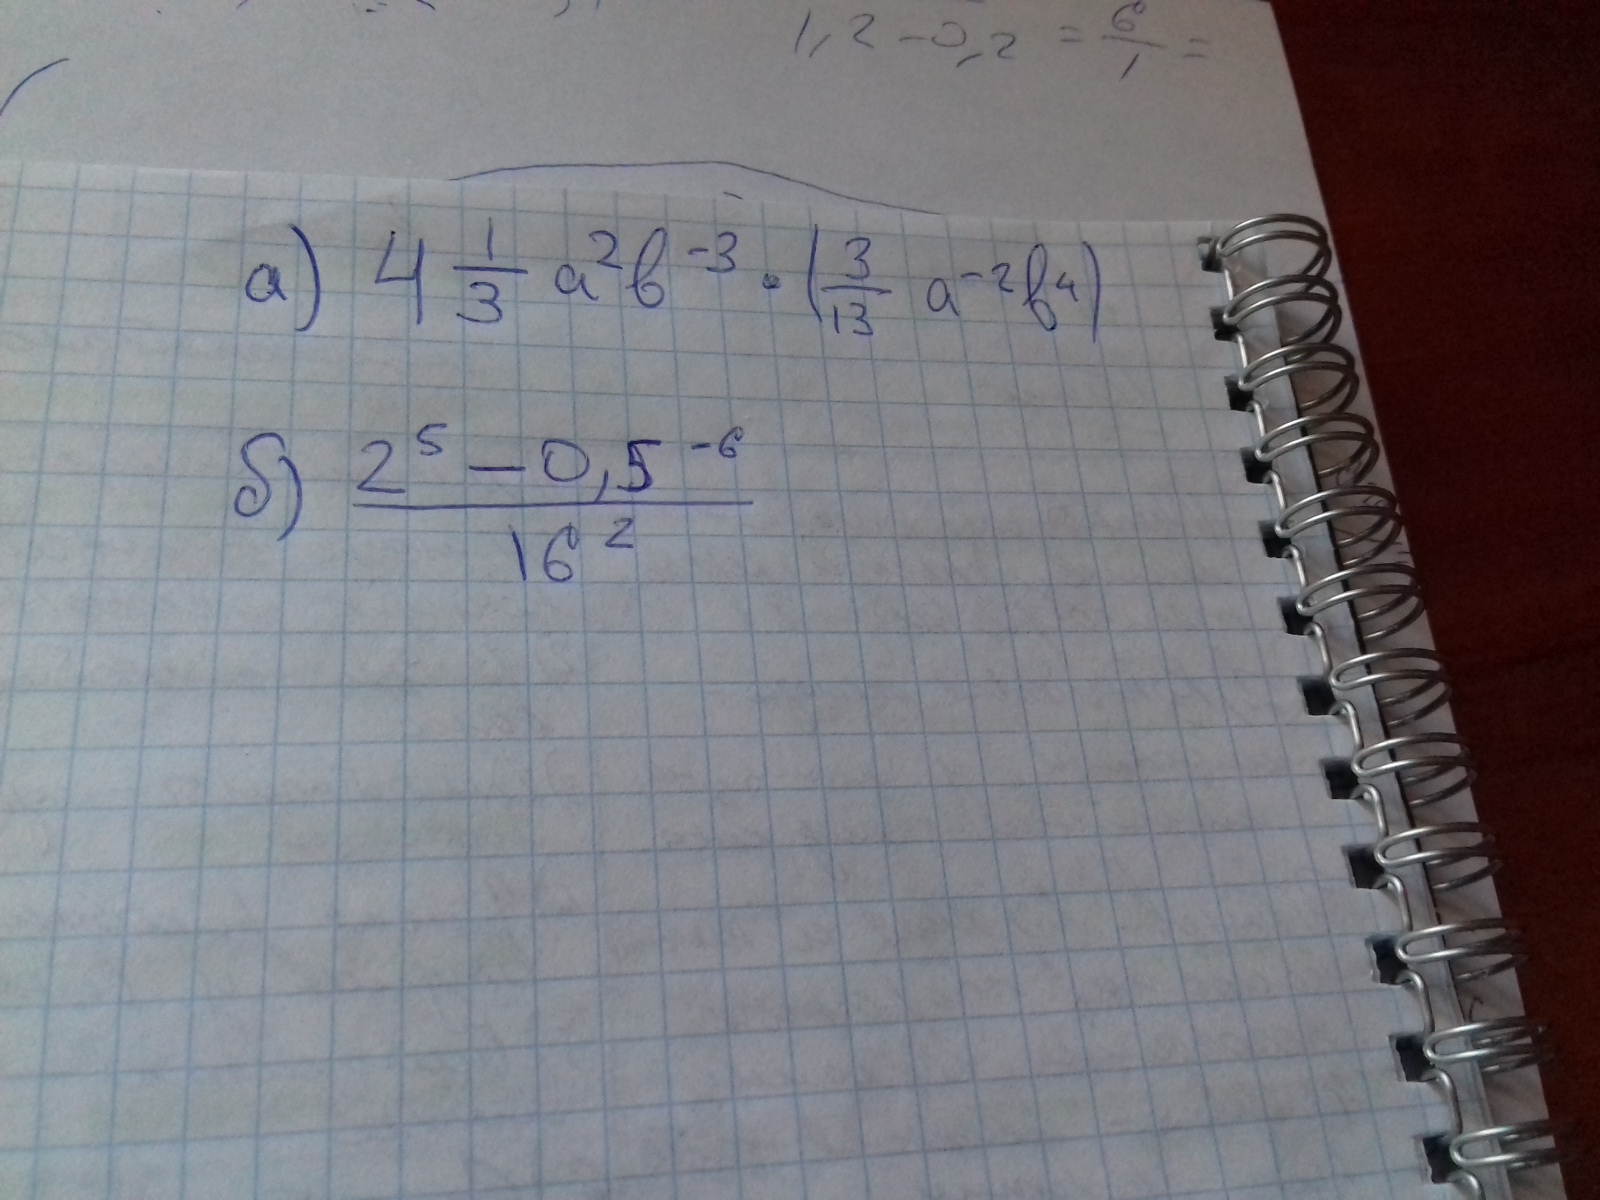 1,2 - 0,2 = 6/1 =
а) 4 1/3 a²b⁻³ · (3/13 a⁻²b⁴)
б) (2⁵ - 0,5⁻⁶)/16²